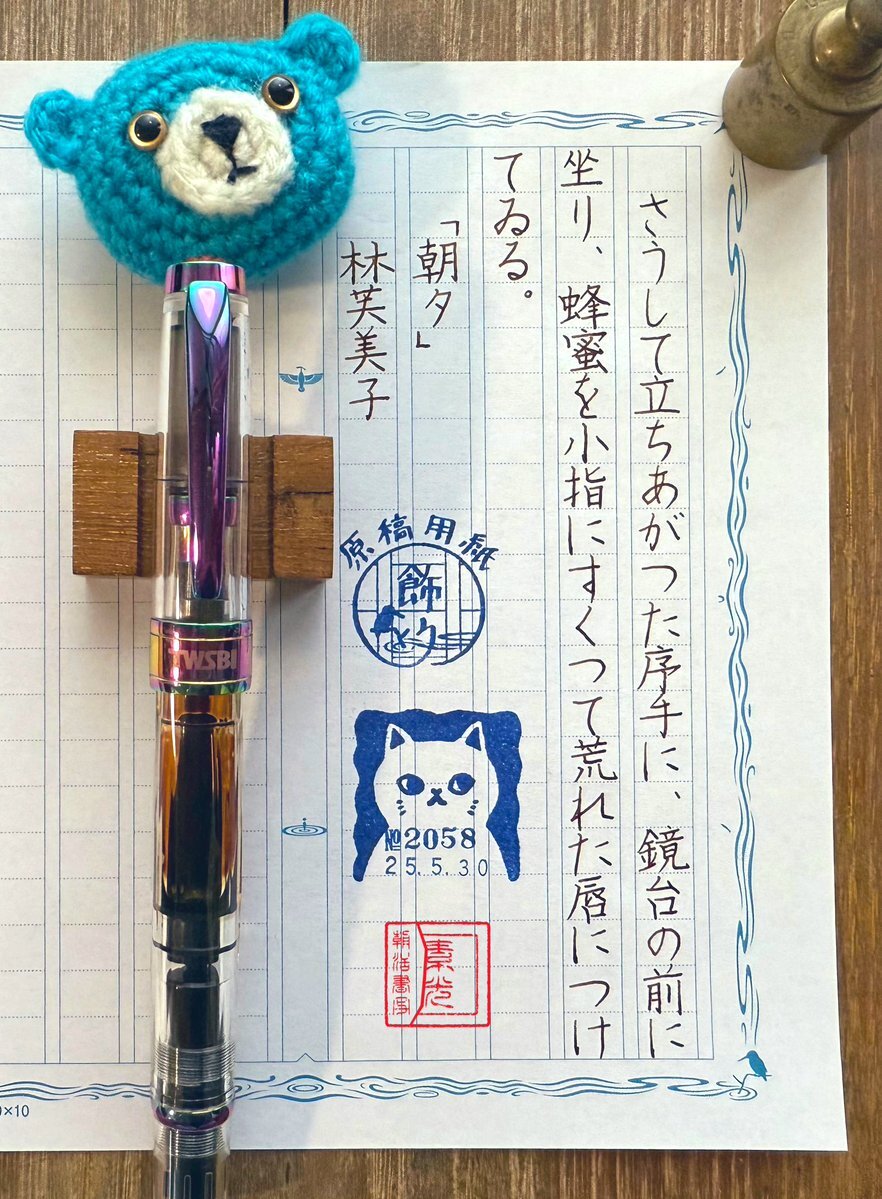 さうして立ちあがつた序手に、鏡台の前に
坐り、蜂蜜を小指にすくつて荒れた唇につけ
てゐる。
「朝夕」
林芙美子
原稿用紙
飾
№2058
25.5.30
素光
朝活書写
TWSBI
×10